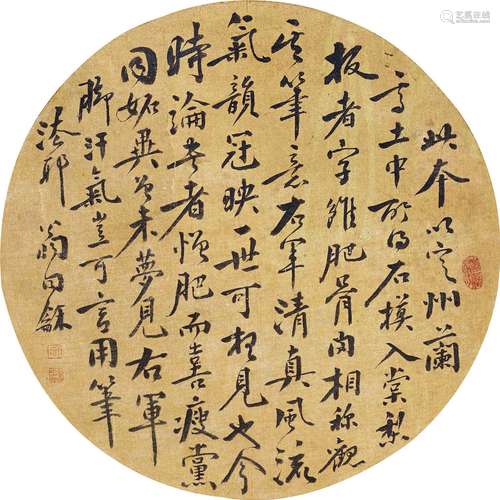 此本以定州蘭
亭土中所得石摸入棠梨
板者字雖肥骨肉相稱觀
其筆意右軍清真風流
氣韻冠映一世可想見也今
時論書者憎肥而喜瘦黨
同妬異曾未夢見右軍
腳汗氣豈可言用筆
法耶 翁同龢
艺狐在线